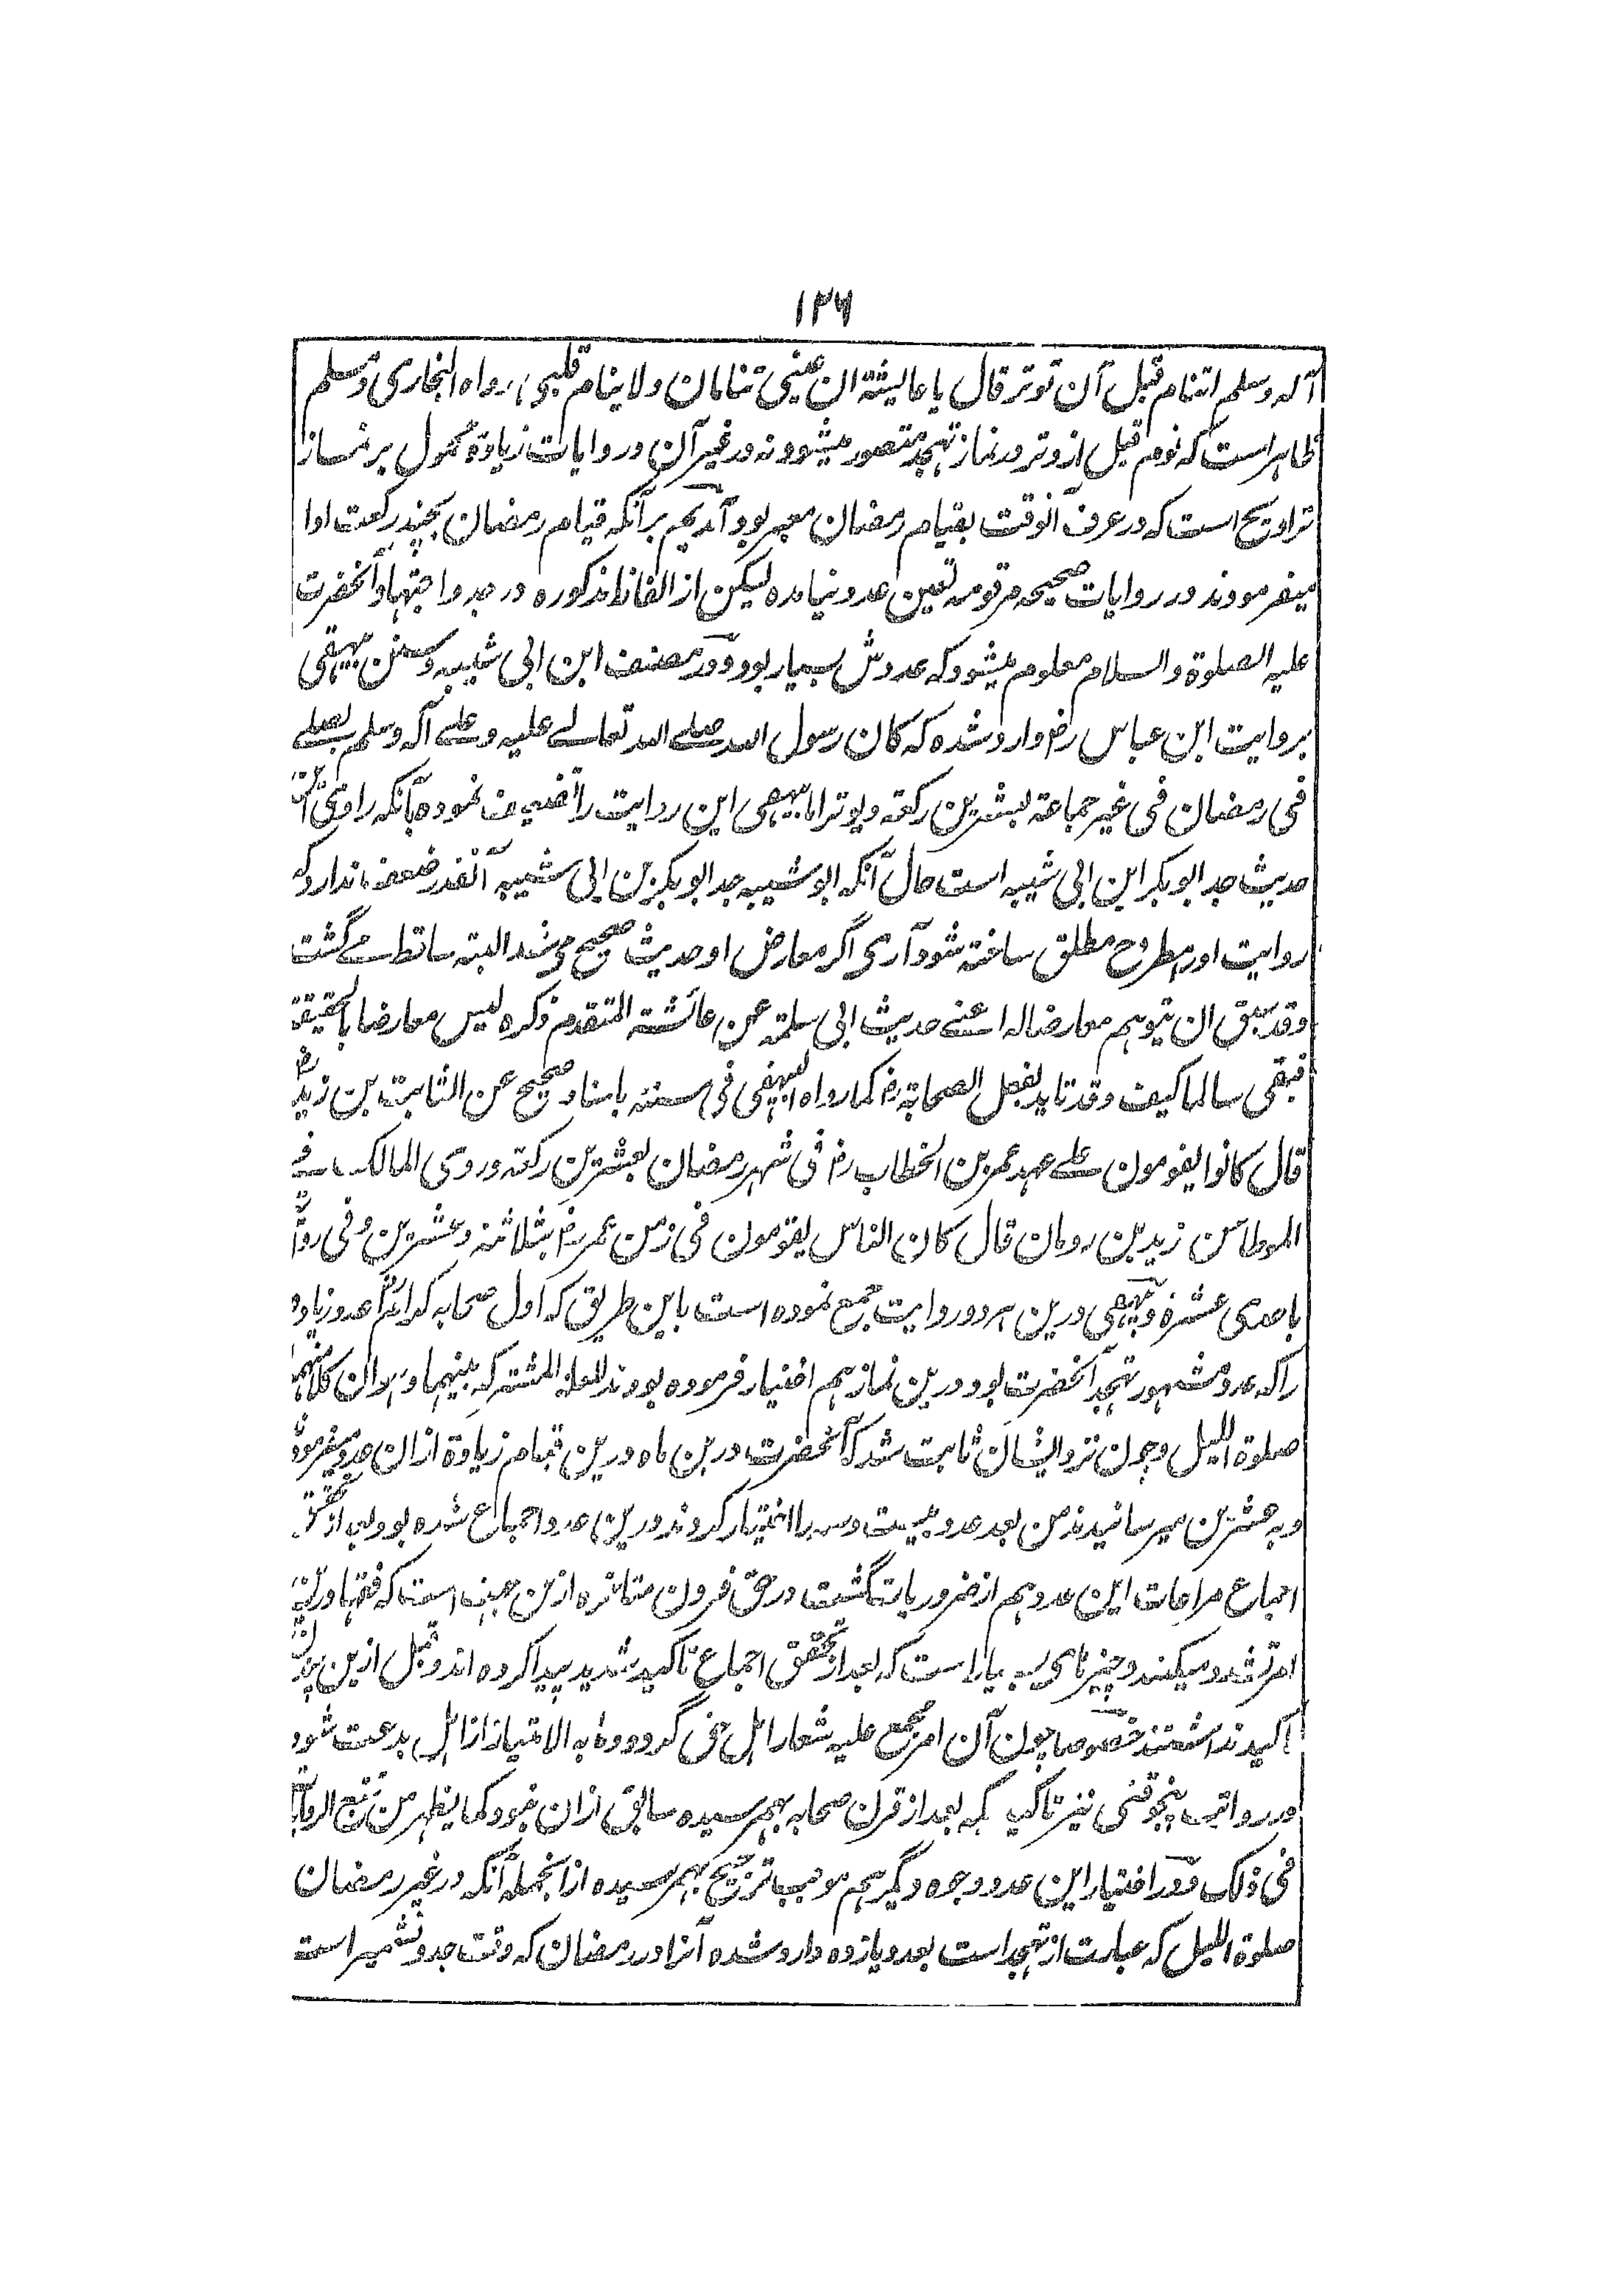 ۱۲۶
آله وسلم اتنام قبل ان توتر قال یا عائیشة ان عینی تنامان ولاینام قلبی، رواه البخاری ومسلم
ظاهر است که نوم قبل از وتر در نماز تهجد متصور میشود نه در غیر آن و روایات زیادة محمول بر نماز
تراویح است که در عرف آنوقت بقیام رمضان معبر بود آمدیم برآنکه قیام رمضان بچند رکعت ادا
میفرمودند در روایات صحیحه مرقومه تعین عدد نیامده لیکن از الفاظ مذکوره در جد و اجتهاد آنحضرت
علیه الصلوة والسلام معلوم میشود که عددش بسیار بود و در مصنف ابن ابی شیبه و سنن بیهقی
بروایت ابن عباس رض وارد شده که کان رسول الله صلے الله تعالے علیه وعلے آله وسلم یصلے
فی رمضان فی غیر جماعة بعشرین رکعة ویوتر اما بیهقی این روایت را تضعیف نموده بآنکه راوی این
حدیث جد ابو بکر ابن ابی شیبه است حال آنکه ابو شیبه جد ابو بکر بن ابی شیبه آنقدر ضعف ندارد که
روایت او مطروح مطلق ساخته شود آری اگر معارض او حدیث صحیح می شد البته ساقط مے گشت
وقد سبق ان یتوهم معارضا له اعنے حدیث ابی سلمة عن عائشة المتقدم ذکره لیس معارضا بالحقیقة
فبقی سالما کیف وقد تاید بفعل الصحابة رض کما رواه البیهقی فی سننه باسناد صحیح عن الثابت بن زید رض
قال کانوا یقومون علے عهد عمر بن الخطاب رض فی شهر رمضان بعشرین رکعة وروی المالک فے
الموطا من زید بن رومان قال کان الناس یقومون فی زمن عمر رض بثلاثة وعشرین وفی روایة
باحدی عشرة و بیهقی درین هر دو روایت جمع نموده است باین طریق که اول صحابه کرام عدد زیاده
را که عدد مشهور تهجد آنحضرت بود درین نماز هم اختیار فرموده بودند للعلة المشترکة بینهما وهو ان کلا منهما
صلوة اللیل و چون نزد ایشان ثابت شد که آنحضرت درین ماه درین قیام زیادة ازان عدد میفرمود
و به عشرین میرسانیدند من بعد عدد بیست وسه را اختیار کردند و درین عدد اجماع شده بود و بعد از تحقق
اجماع مراعات این عدد هم از ضروریات گشت در حق قرون متاخره ازین جهت است که فقها درین
امر تشدد میکنند و چیزهای بسیار است که بعد از تحقق اجماع تاکید شدید پیدا کرده اند و قبل ازین
تاکید نداشتند خصوصا چون آن امر مجمع علیه شعار اهل حق گردد و ما به الامتیاز از اهل بدعت شود
و در رواتب پنجوقتی نیز تاکید که بعد از قرن صحابه بهم رسیده سابق ازان نبود کما یظهر من تتبع الروایات
فی ذلک و در اختیار این عدد وجوه دیگر هم موجب ترجیح بهم رسیده ازانجمله آنکه در غیر رمضان
صلوة اللیل که عبارت از تهجد است بعدد یازده وارد شده آنرا در رمضان که وقت جد و تشمیر است